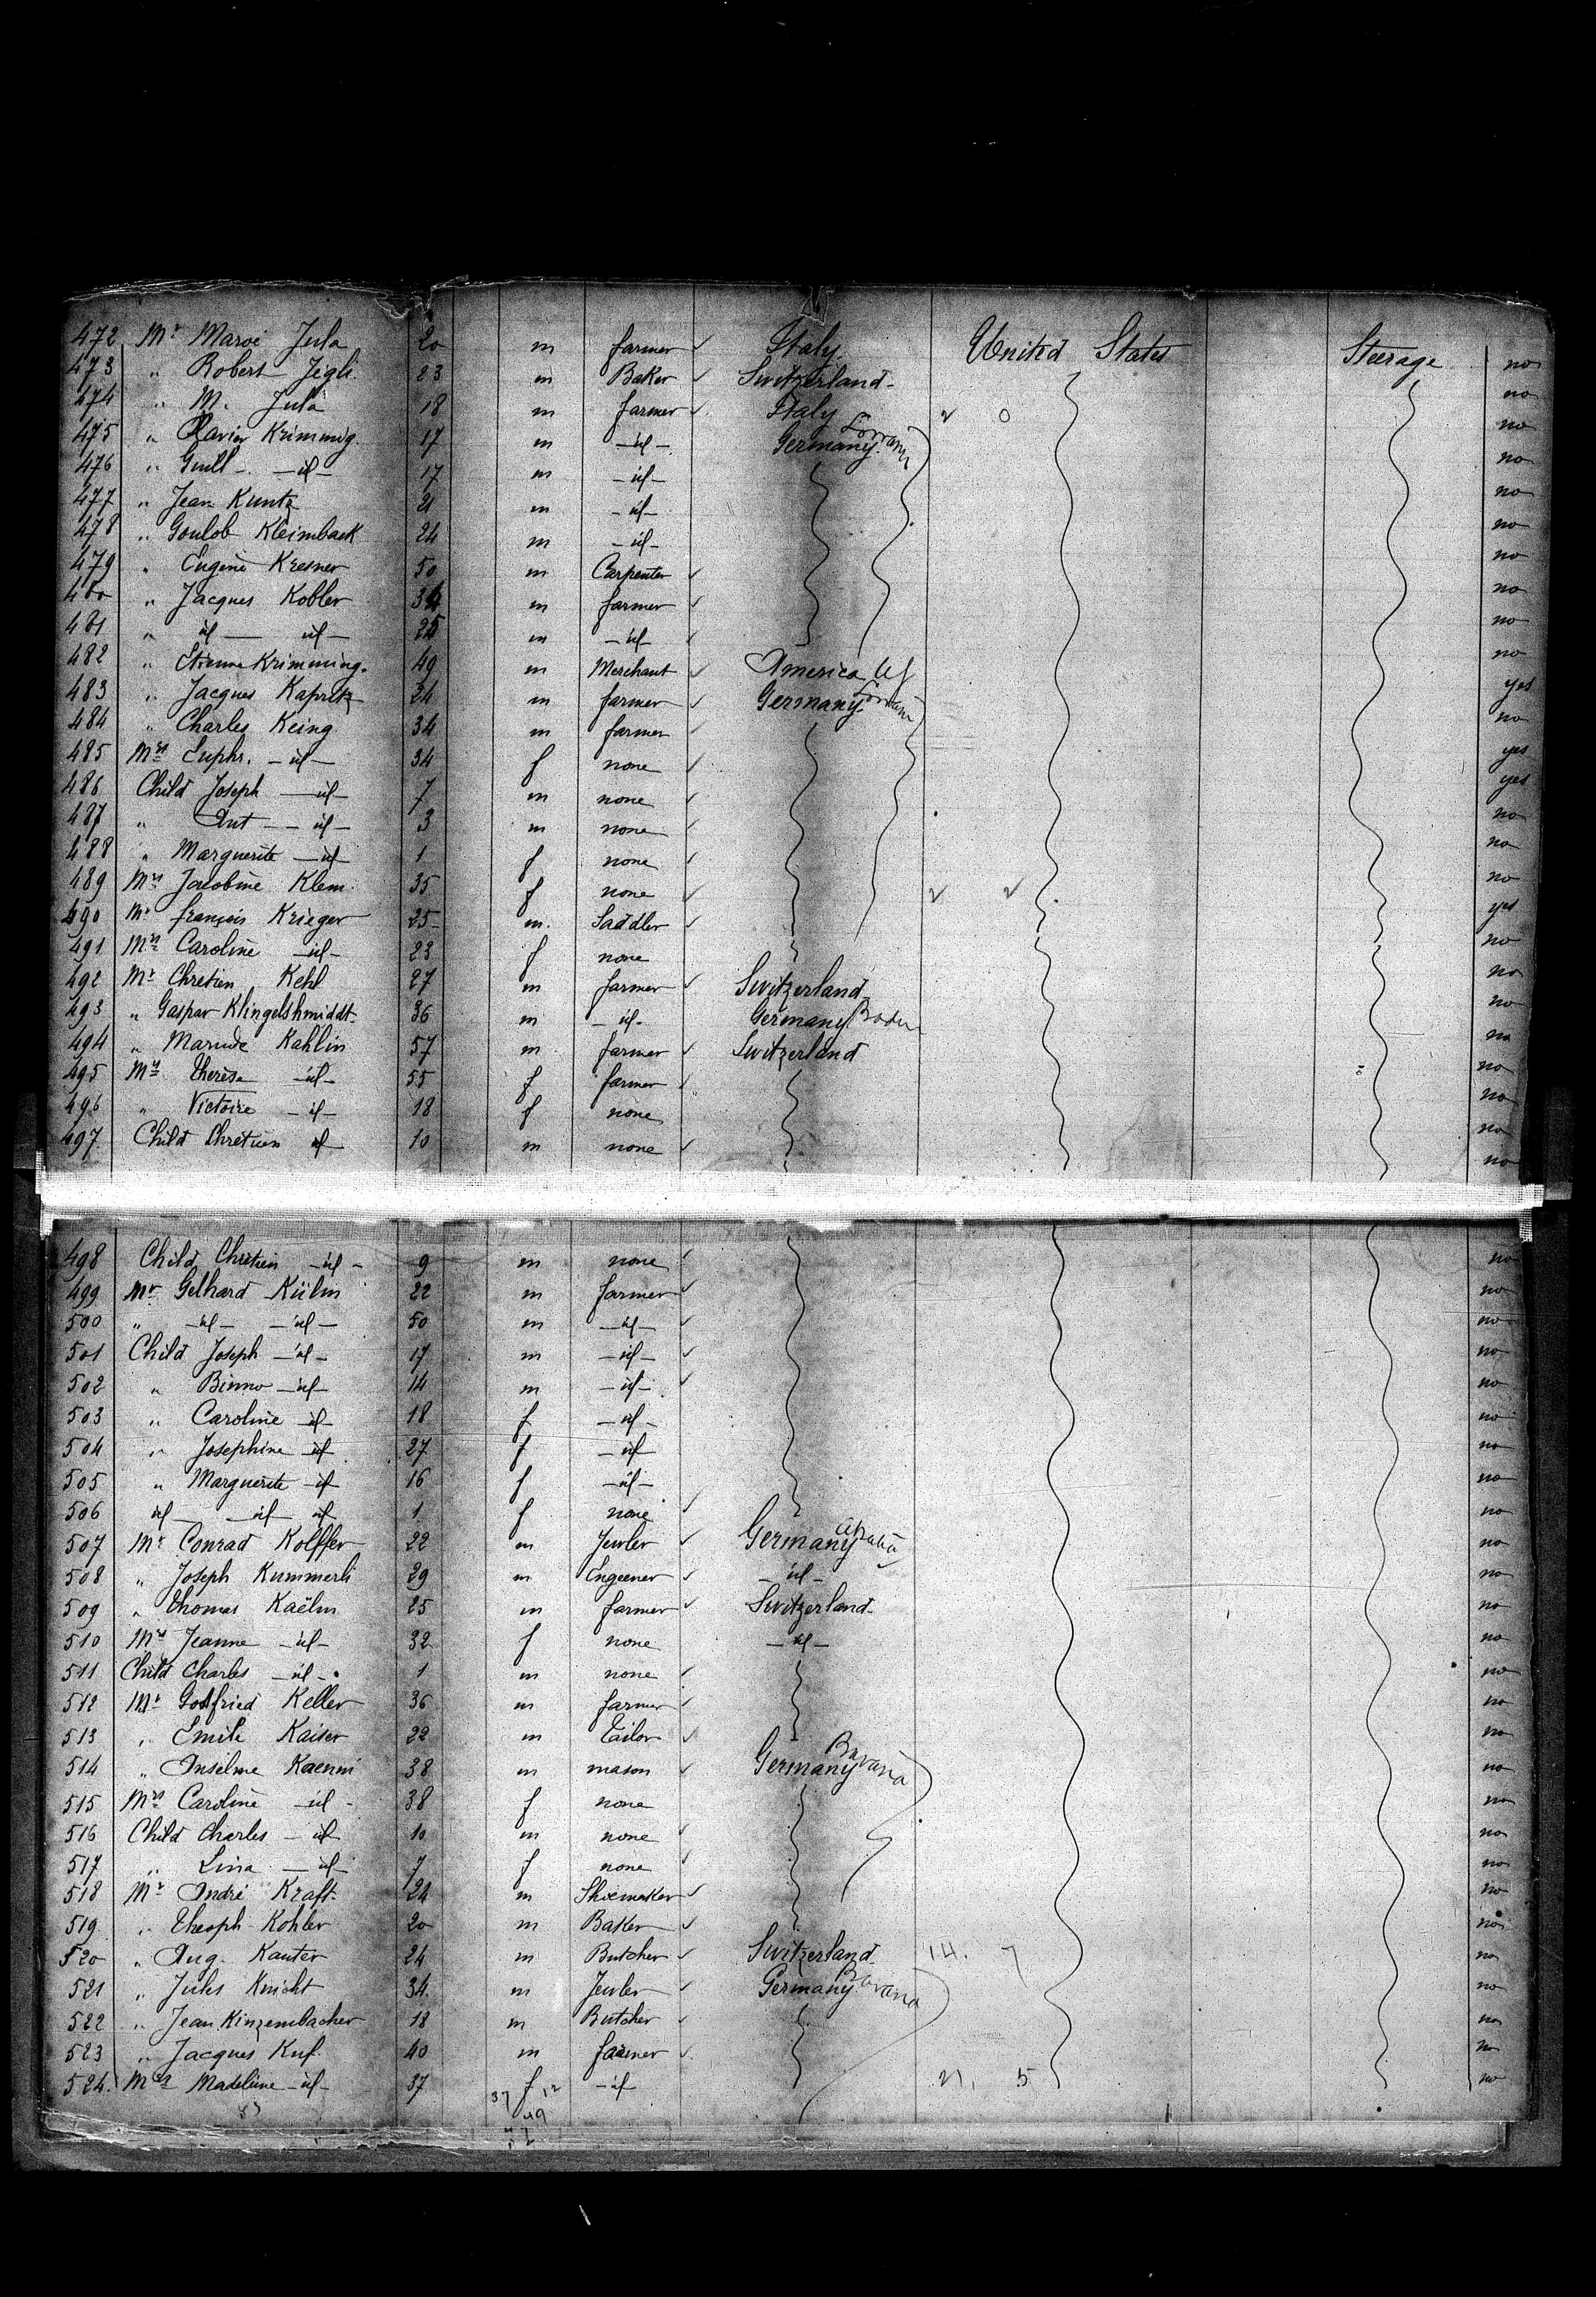 472 Mr Maroi Jula 20 m farmer Italy United States Steerage no
473 " Robert Jegli 23 m Baker Switzerland no
474 " M. Jula 18 m farmer Italy no
475 " Xavier Krimmig 17 m -id- Germany Lorraine no
476 " Guill -id- 17 m -id- no
477 " Jean Kuntz 21 m -id- no
478 " Goulob Kleimback 24 m -id- no
479 " Eugène Kresner 50 m Carpenter no
480 " Jacques Kobler 34 m farmer no
481 " id id 25 m -id- no
482 " Etienne Krimming 49 m Merchant America US yes
483 " Jacques Kapritz 24 m farmer Germany Lorraine no
484 " Charles Keing 34 m farmer yes
485 Mrs Euphr. -id- 34 f none yes
486 Child Joseph -id- 7 m none no
487 " Ant -id- 3 m none no
488 " Marguerite -id- 1 f none no
489 Mrs Jacobine Klem 35 f none yes
490 Mr françois Krieger 25 m. Saddler no
491 Mrs Caroline -id- 23 f none no
492 Mr Chretien Kehl 27 m farmer Switzerland no
493 " Gaspar Klingelshmiddt 36 m -id- Germany Baden no
494 " Kahlin 57 m farmer Switzerland no
495 Mrs Therèse -id- 55 f farmer no
496 " Victoire -id- 18 f none no
497 Child Chretien id 10 m none no
498 Child Chretien -id- 9 m none no
499 Mr Gelhard Külin 22 m farmer no
500 " -id- -id- 50 m -id- no
501 Child Joseph -id- 17 m -id- no
502 " Binno -id- 14 m -id- no
503 " Caroline -id- 18 f -id- no
504 " Josephine -id- 27 f -id no
505 " Marguerite -id 16 f -id- no
506 id -id- id 1 f none no
507 Mr Conrad Kolffer 22 m Jewler Germany no
508 " Joseph Kummerli 29 m Engeener -id- no
509 " Thomas Kaëlin 25 m farmer Switzerland no
510 Mrs Jeanne -id- 32 f none -id- no
511 Child Charles -id- 1 m none no
512 Mr Gotfried Keller 36 m farmer no
513 " Emile Kaiser 22 m Tailor no
514 " Anselme Kaenni 38 m mason Germany Bavaria no
515 Mrs Caroline -id- 38 f none no
516 Child Charles -id- 10 m none no
517 " Lina -id- 7 f none no
518 Mr André Kraft 24 m Shoemaker no
519 " Theoph Kohler 20 m Baker no
520 " Aug. Kanter 24 m Butcher Switzerland 14. 7 no
521 " Jules Knicht 34 m Jewler Germany Bavaria no
522 " Jean Kinzembacher 18 m Butcher no
523 " Jacques Kuf 40 m farmer no
524. Mrs Madeleine -id- 37 f -id 21, 5 no
37 12
49